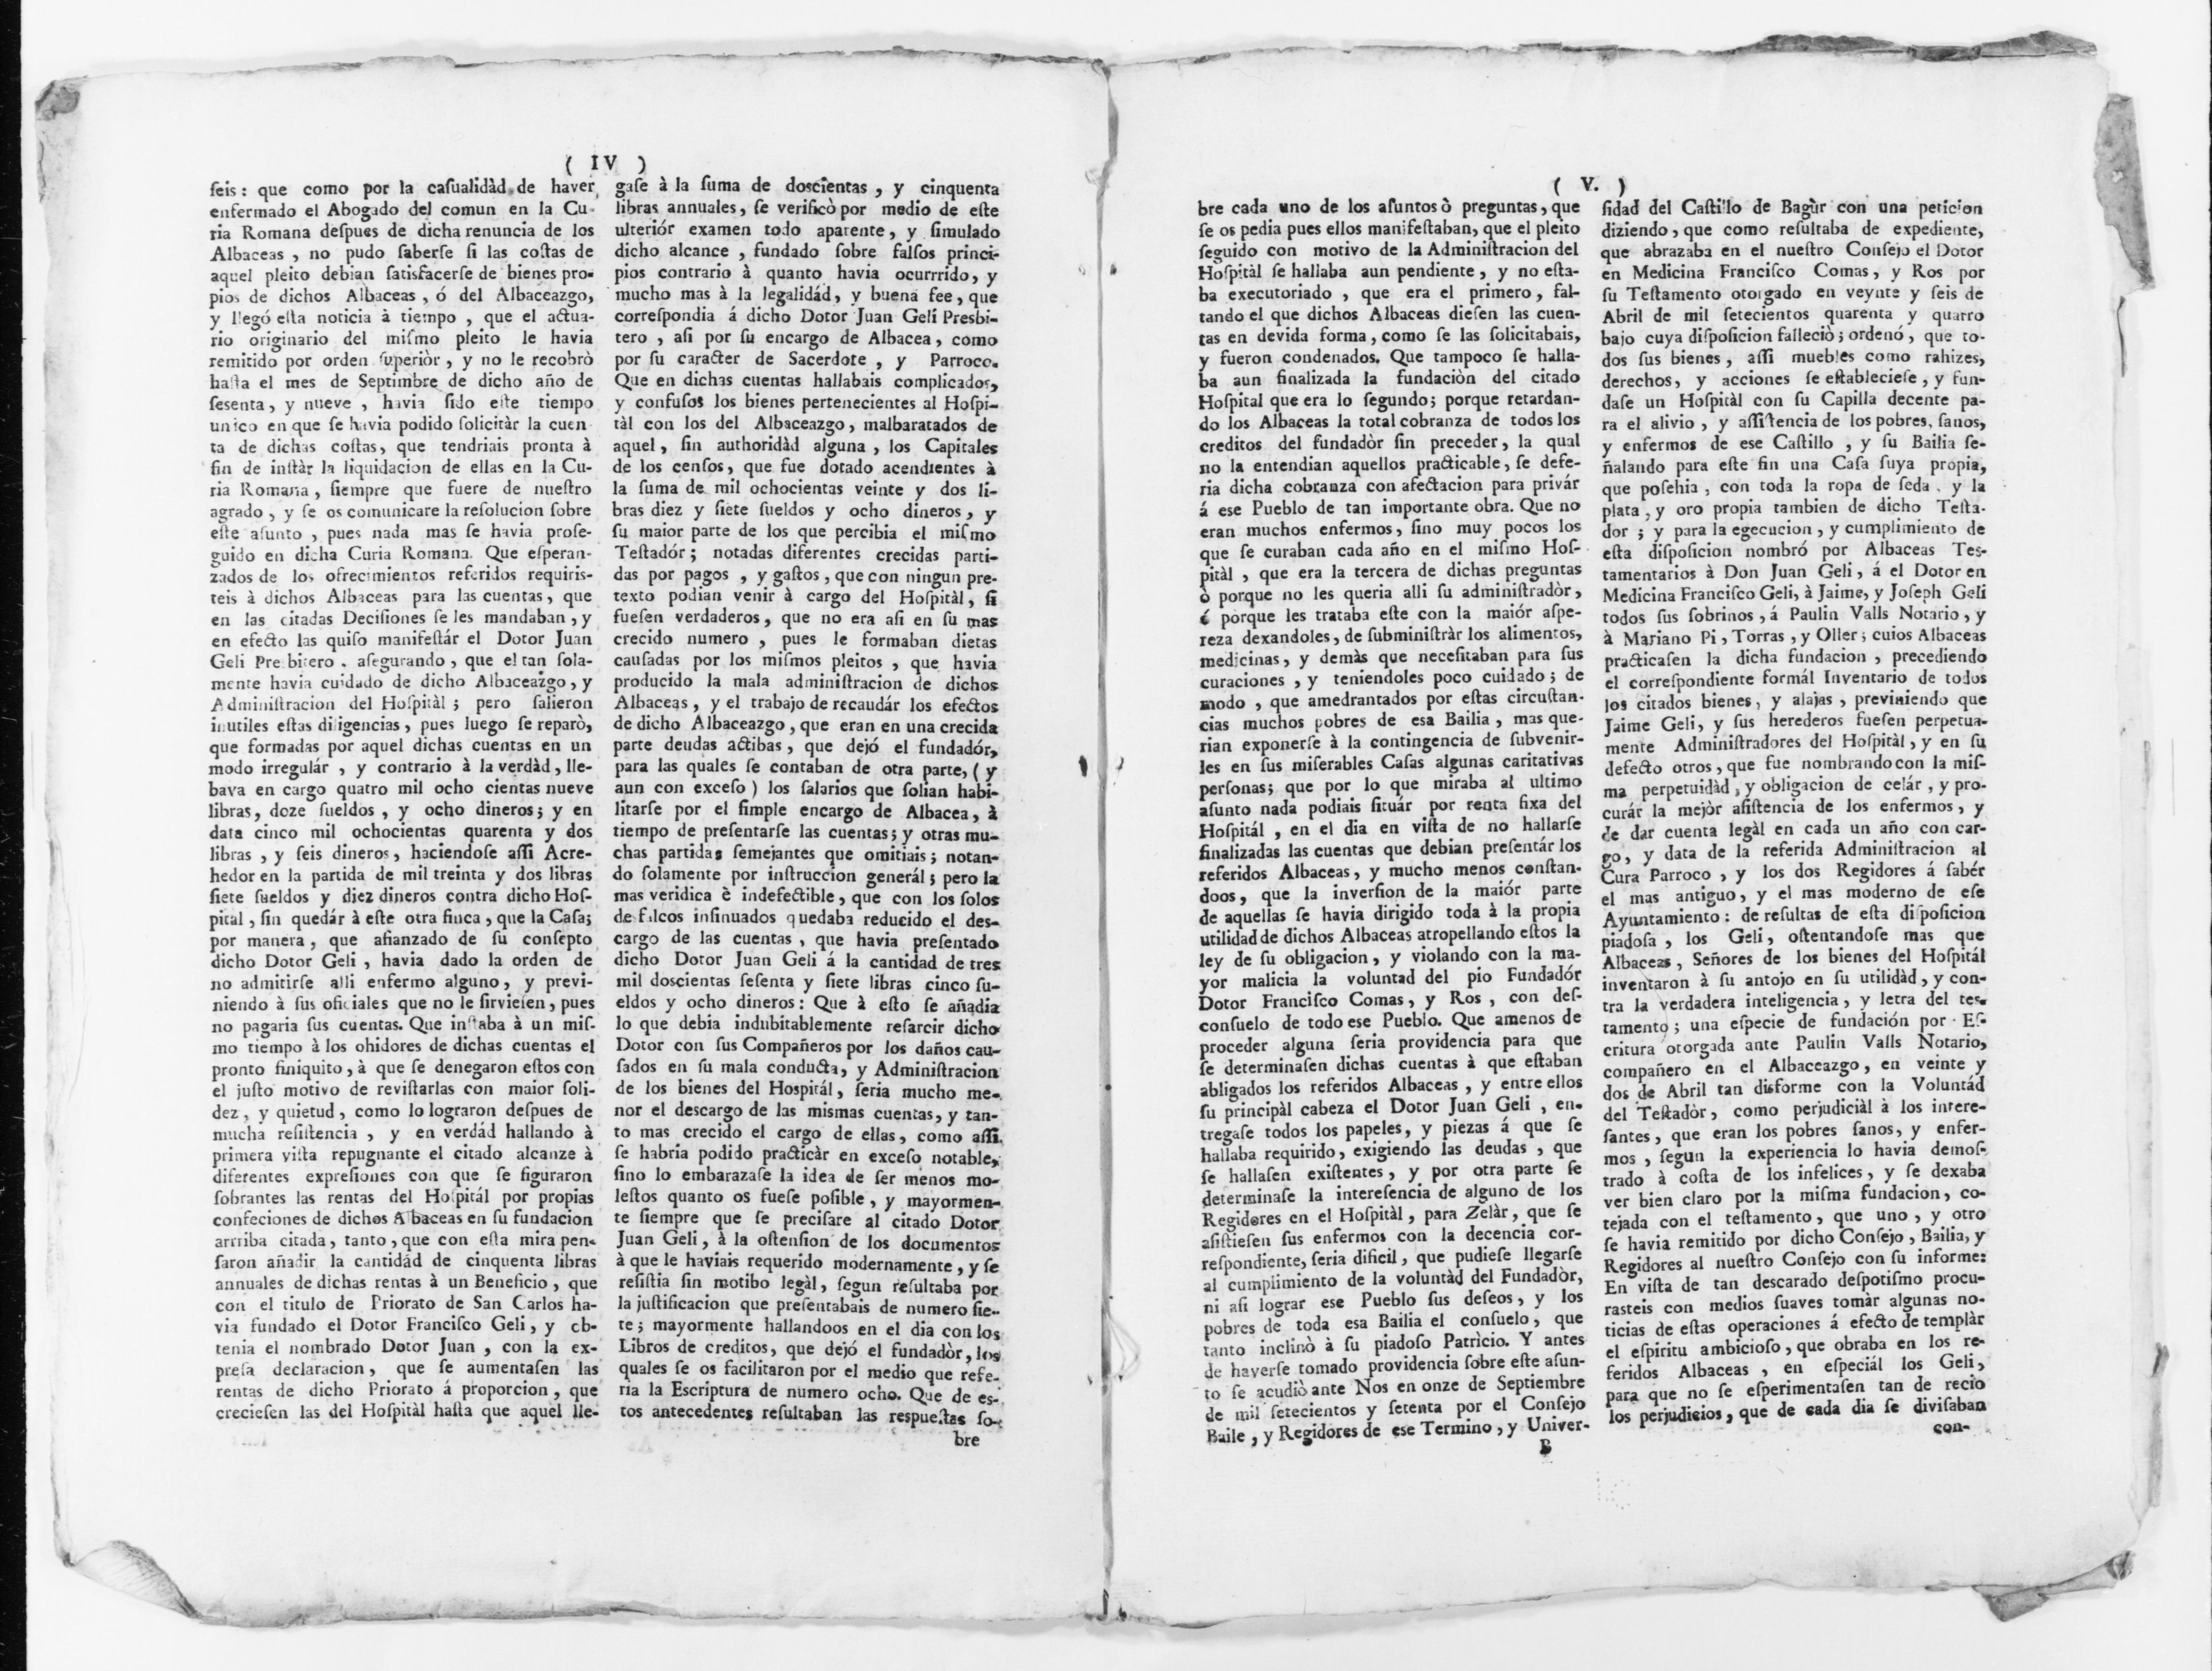 ( IV )
ſeis: que como por la caſualidàd de haver
enfermado el Abogado del comun en la Cu-
ria Romana deſpues de dicha renuncia de los
Albaceas , no pudo ſaberſe ſi las coſtas de
aquel pleito debian ſatisfacerſe de bienes pro-
pios de dichos Albaceas , ó del Albaceazgo,
y llegó eſta noticia à tiempo , que el actua-
rio originario del miſmo pleito le havia
remitido por orden ſuperiòr , y no le recobrò
haſta el mes de Septimbre de dicho año de
ſesenta, y nueve , havia ſido eſte tiempo
unico en que ſe havia podido ſolicitàr la cuen
ta de dichas coſtas, que tendriais pronta à
fin de inſtàr la liquidacion de ellas en la Cu-
ria Romana , ſiempre que fuere de nueſtro
agrado , y ſe os comunicare la reſolucion ſobre
eſte aſunto , pues nada mas ſe havia proſe-
guido en dicha Curia Romana. Que eſperan-
zados de los ofrecimientos referidos requiris-
teis à dichos Albaceas para las cuentas, que
en las citadas Deciſiones ſe les mandaban , y
en efecto las quiſo manifeſtár el Dotor Juan
Geli Presbitero . aſegurando , que el tan ſola-
mente havia cuidado de dicho Albaceazgo, y
Adminiſtracion del Hoſpitàl ; pero ſalieron
inutiles eſtas diligencias, pues luego ſe reparò,
que formadas por aquel dichas cuentas en un
modo irregulár , y contrario à la verdàd , lle-
bava en cargo quatro mil ocho cientas nueve
libras, doze ſueldos , y ocho dineros; y en
data cinco mil ochocientas quarenta y dos
libras , y ſeis dineros, haciendoſe aſſi Acre-
hedor en la partida de mil treinta y dos libras
ſiete ſueldos y diez dineros contra dicho Hoſ-
pital , ſin quedár à eſte otra finca , que la Caſa;
por manera, que afianzado de ſu conſepto
dicho Dotor Geli , havia dado la orden de
no admitirſe alli enfermo alguno, y previ-
niendo à ſus oficiales que no le ſirvieſen, pues
no pagaria ſus cuentas. Que inſtaba à un miſ-
mo tiempo à los ohidores de dichas cuentas el
pronto finiquito , à que ſe denegaron eſtos con
el juſto motivo de reviſtarlas con maior ſoli-
dez, y quietud , como lo lograron deſpues de
mucha reſiſtencia , y en verdád hallando à
primera viſta repugnante el citado alcanze à
diferentes expreſiones con que ſe figuraron
ſobrantes las rentas del Hoſpitál por propias
confeciones de dichos Albaceas en ſu fundacion
arrriba citada, tanto, que con eſta mira pen-
ſaron añadir la cantidád de cinquenta libras
annuales de dichas rentas à un Beneficio , que
con el titulo de Priorato de San Carlos ha-
via fundado el Dotor Franciſco Geli, y ob-
tenia el nombrado Dotor Juan , con la ex-
preſa declaracion, que ſe aumentaſen las
rentas de dicho Priorato á proporcion, que
crecieſen las del Hoſpitàl haſta que aquel lle-
gaſe à la ſuma de doscientas , y cinquenta
libras annuales, ſe verificò por medio de eſte
ulteriór examen todo aparente, y ſimulado
dicho alcance , fundado ſobre falſos princi-
pios contrario à quanto havia ocurrrido, y
mucho mas à la legalidád, y buena fee, que
correſpondia á dicho Dotor Juan Geli Presbi-
tero , aſi por ſu encargo de Albacea, como
por ſu caracter de Sacerdote , y Parroco.
Que en dichas cuentas hallabais complicados,
y confuſos los bienes pertenecientes al Hoſpi-
tàl con los del Albaceazgo, malbaratados de
aquel , ſin authoridàd alguna , los Capitales
de los cenſos, que fue dotado acendientes à
la ſuma de mil ochocientas veinte y dos li-
bras diez y ſiete ſueldos y ocho dineros, y
ſu maior parte de los que percibia el miſmo
Teſtadór; notadas diferentes crecidas parti-
das por pagos , y gaſtos, que con ningun pre-
texto podian venir à cargo del Hoſpitàl, ſi
fueſen verdaderos, que no era aſi en ſu mas
crecido numero , pues le formaban dietas
cauſadas por los miſmos pleitos , que havia
producido la mala adminiſtracion de dichos
Albaceas , y el trabajo de recaudár los efectos
de dicho Albaceazgo , que eran en una crecida
parte deudas actibas , que dejó el fundadór,
para las quales ſe contaban de otra parte, ( y
aun con exceſo ) los ſalarios que ſolian habi-
litarſe por el ſimple encargo de Albacea, à
tiempo de preſentarſe las cuentas; y otras mu-
chas partidas ſemejantes que omitiais; notan-
do ſolamente por inſtruccion generál ; pero la
mas veridica è indefectible, que con los ſolos
desfalcos inſinuados quedaba reducido el des-
cargo de las cuentas , que havia preſentado
dicho Dotor Juan Geli á la cantidad de tres
mil doscientas ſeſenta y ſiete libras cinco ſu-
eldos y ocho dineros: Que à eſto ſe añadia
lo que debia indubitablemente reſarcir dicho
Dotor con ſus Compañeros por los daños cau-
ſados en ſu mala conducta, y Adminiſtracion
de los bienes del Hospitál, ſeria mucho me-
nor el descargo de las mismas cuentas, y tan-
to mas crecido el cargo de ellas, como aſſi
ſe habria podido practicàr en exceſo notable,
ſino lo embarazaſe la idea de ſer menos mo-
leſtos quanto os fueſe poſible , y mayormen-
te ſiempre que ſe preciſare al citado Dotor
Juan Geli , à la oſtenſion de los documentos
à que le haviais requerido modernamente , y ſe
reſiſtia ſin motibo legàl, ſegun reſultaba por
la juſtificacion que preſentabais de numero ſie-
te; mayormente hallandoos en el dia con los
Libros de creditos, que dejó el fundadòr, los
quales ſe os facilitaron por el medio que refe-
ria la Escriptura de numero ocho. Que de es-
tos antecedentes reſultaban las respueſtas ſo-
bre
( V. )
bre cada uno de los aſuntos ò preguntas, que
ſe os pedia pues ellos manifeſtaban, que el pleito
ſeguido con motivo de la Adminiſtracion del
Hoſpitàl ſe hallaba aun pendiente , y no eſta-
ba executoriado , que era el primero , fal-
tando el que dichos Albaceas dieſen las cuen-
tas en devida forma, como ſe las ſolicitabais,
y fueron condenados. Que tampoco ſe halla-
ba aun finalizada la fundaciòn del citado
Hoſpital que era lo ſegundo; porque retardan-
do los Albaceas la total cobranza de todos los
creditos del fundadòr ſin preceder, la qual
no la entendian aquellos practicable, ſe defe-
ria dicha cobranza con afectacion para privár
á ese Pueblo de tan importante obra. Que no
eran muchos enfermos, ſino muy pocos los
que ſe curaban cada año en el miſmo Hoſ-
pitàl , que era la tercera de dichas preguntas
ò porque no les queria alli ſu adminiſtradòr,
ó porque les trataba eſte con la maiór aſpe-
reza dexandoles, de ſubminiſtràr los alimentos,
medicinas, y demàs que neceſitaban para ſus
curaciones , y teniendoles poco cuidado ; de
modo , que amedrantados por eſtas circuſtan-
cias muchos pobres de esa Bailia , mas que-
rian exponerſe à la contingencia de ſubvenir-
les en ſus miſerables Caſas algunas caritativas
perſonas; que por lo que miraba al ultimo
aſunto nada podiais ſituár por renta fixa del
Hoſpitál , en el dia en viſta de no hallarſe
finalizadas las cuentas que debian preſentár los
referidos Albaceas, y mucho menos conſtan-
doos, que la inverſion de la maiór parte
de aquellas ſe havia dirigido toda à la propia
utilidad de dichos Albaceas atropellando eſtos la
ley de ſu obligacion, y violando con la ma-
yor malicia la voluntad del pio Fundadór
Dotor Franciſco Comas, y Ros , con deſ-
conſuelo de todo ese Pueblo. Que amenos de
proceder alguna ſeria providencia para que
ſe determinaſen dichas cuentas à que eſtaban
abligados los referidos Albaceas , y entre ellos
ſu principàl cabeza el Dotor Juan Geli , en-
tregaſe todos los papeles, y piezas á que ſe
hallaba requirido, exigiendo las deudas , que
ſe hallaſen exiſtentes , y por otra parte ſe
determinaſe la intereſencia de alguno de los
Regidores en el Hoſpitàl, para Zelàr, que ſe
aſiſtieſen ſus enfermos con la decencia cor-
reſpondiente, ſeria dificil , que pudieſe llegarſe
al cumplimiento de la voluntàd del Fundadòr,
ni aſi lograr ese Pueblo ſus deſeos, y los
pobres de toda esa Bailia el conſuelo, que
tanto inclinò à ſu piadoſo Patrìcio. Y antes
de haverſe tomado providencia ſobre eſte aſun-
to ſe acudiò ante Nos en onze de Septiembre
de mil ſetecientos y ſetenta por el Conſejo
Baile , y Regidores de ese Termino, y Univer-
B
ſidad del Caſtillo de Bagùr con una peticion
diziendo, que como reſultaba de expediente,
que abrazaba en el nueſtro Conſejo el Dotor
en Medicina Franciſco Comas, y Ros por
ſu Teſtamento otorgado en veynte y ſeis de
Abril de mil ſetecientos quarenta y quatro
bajo cuya diſpoſicion falleciò; ordenó, que to-
dos ſus bienes, aſſi muebles como rahizes,
derechos, y acciones ſe eſtablecieſe, y fun-
daſe un Hoſpitàl con ſu Capilla decente pa-
ra el alivio , y aſſiſtencia de los pobres, ſanos,
y enfermos de ese Caſtillo , y ſu Bailia ſe-
ñalando para eſte fin una Caſa ſuya propia,
que poſehia , con toda la ropa de ſeda , y la
plata, y oro propia tambien de dicho Teſta-
dor ; y para la egecucion , y cumplimiento de
eſta diſpoſicion nombró por Albaceas Tes-
tamentarios à Don Juan Geli, á el Dotor en
Medicina Franciſco Geli, à Jaime, y Joſeph Geli
todos ſus ſobrinos , á Paulin Valls Notario, y
à Mariano Pi, Torras, y Oller; cuios Albaceas
practicaſen la dicha fundacion , precediendo
el correſpondiente formál Inventario de todos
los citados bienes, y alajas , previniendo que
Jaime Geli, y ſus herederos fueſen perpetua-
mente Adminiſtradores del Hoſpitàl, y en ſu
defecto otros, que fue nombrando con la miſ-
ma perpetuidàd, y obligacion de celár, y pro-
curár la mejòr aſiſtencia de los enfermos, y
de dar cuenta legàl en cada un año con car-
go, y data de la referida Adminiſtracion al
Cura Parroco , y los dos Regidores á ſabér
el mas antiguo, y el mas moderno de ese
Ayuntamiento: de reſultas de eſta diſpoſicion
piadoſa , los Geli, oſtentandoſe mas que
Albaceas, Señores de los bienes del Hoſpitál
inventaron à ſu antojo en ſu utilidàd, y con-
tra la verdadera inteligencia, y letra del tes-
tamento; una eſpecie de fundación por Eſ-
critura otorgada ante Paulin Valls Notario,
compañero en el Albaceazgo, en veinte y
dos de Abril tan disforme con la Voluntád
del Teſtadòr, como perjudiciàl à los intere-
ſantes, que eran los pobres ſanos, y enfer-
mos , ſegun la experiencia lo havia demoſ-
trado à coſta de los infelices, y ſe dexaba
ver bien claro por la miſma fundacion, co-
tejada con el teſtamento, que uno , y otro
ſe havia remitido por dicho Conſejo, Bailia, y
Regidores al nueſtro Conſejo con ſu informe:
En viſta de tan descarado deſpotiſmo procu-
rasteis con medios ſuaves tomàr algunas no-
ticias de eſtas operaciones á efecto de templàr
el eſpiritu ambicioſo, que obraba en los re-
feridos Albaceas , en eſpeciál los Geli,
para que no ſe eſperimentaſen tan de recio
los perjudicios, que de cada dia ſe diviſaban
con-